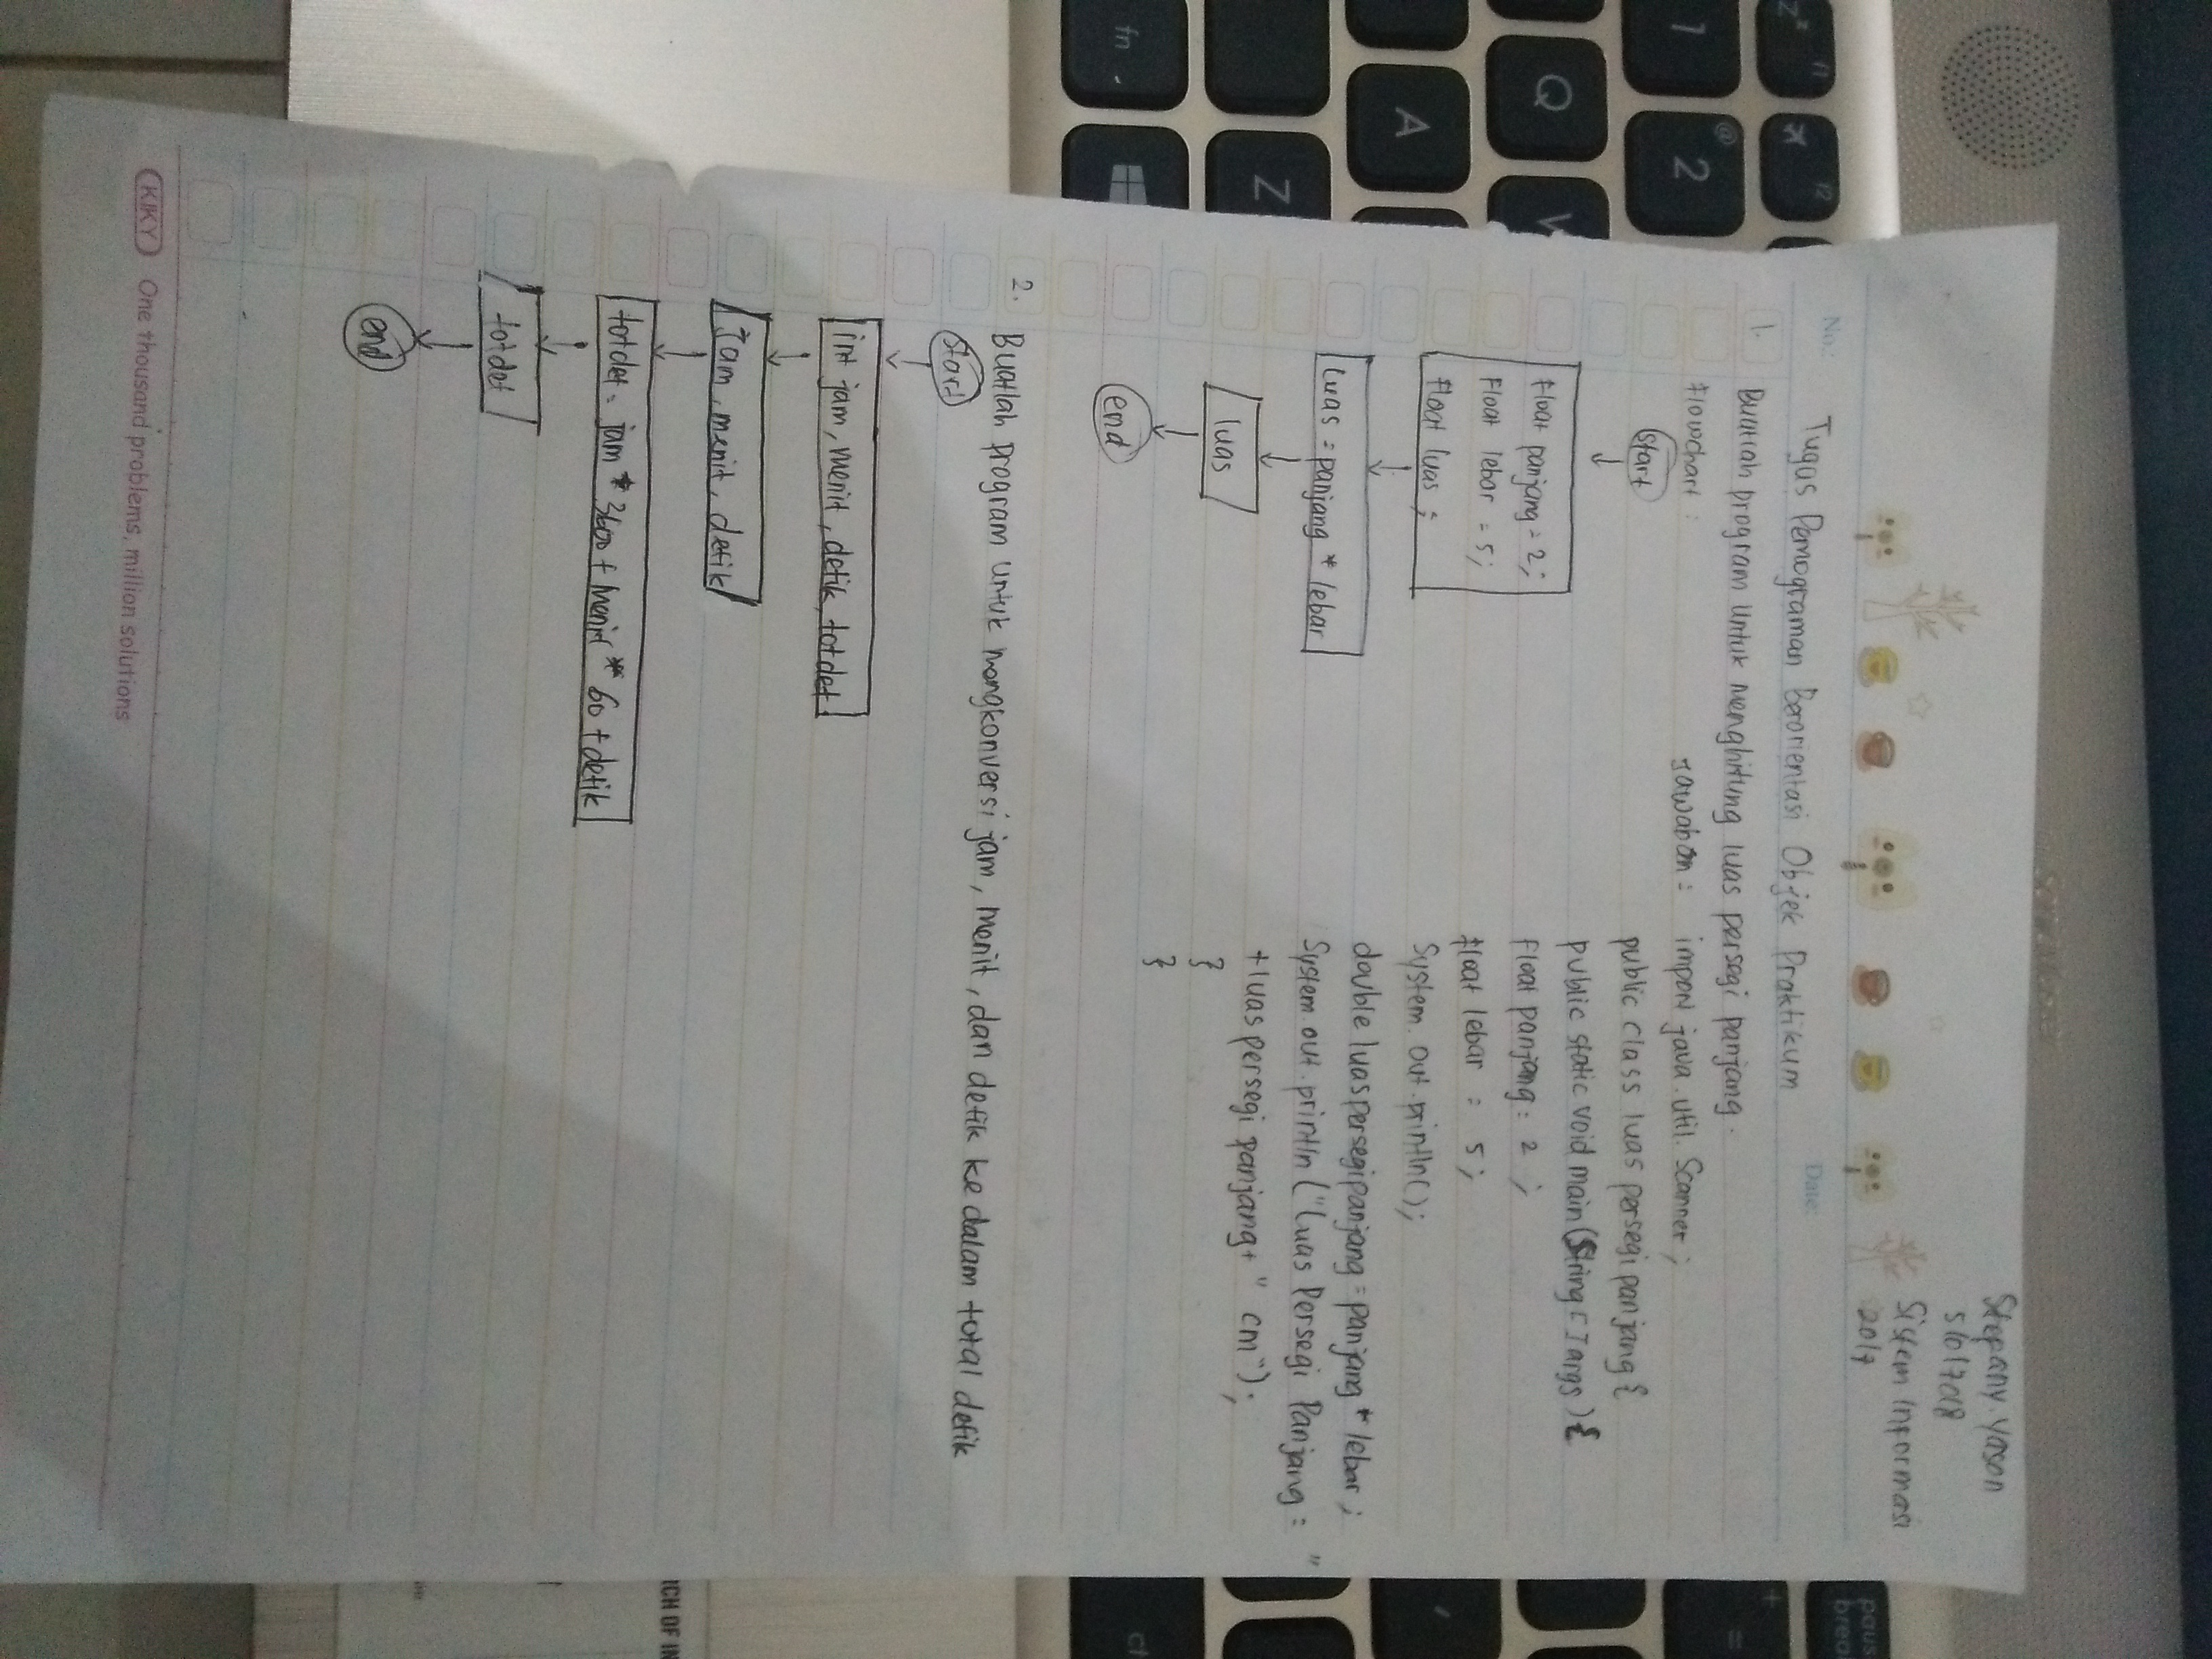 SonicMaster
Stepany. Yason
51017018
Sistem Informasi
2017
No.:
Date:
Tugas Pemograman Berorientasi Objek Praktikum
1. Buatlah program untuk menghitung luas persegi panjang.
Flowchart :
start
float panjang = 2;
Float lebar = 5;
float luas ;
Luas = panjang * lebar
luas
end
Jawaban =
import java. util. Scanner ;
public class luas persegi panjang {
public static void main (String [] args) {
float panjang = 2 ;
float lebar = 5 ;
System. out. println();
double luaspersegipanjang = panjang * lebar ;
System. out. println ("Luas Persegi Panjang = "
+ luas persegi panjang + " cm");
}
}
2. Buatlah program untuk mengkonversi jam, menit, dan detik ke dalam total detik
start
int jam, menit, detik, totdet
jam, menit, detik
totdet = jam * 3600 + menit * 60 + detik
totdet
end
KIKY One thousand problems, million solutions
f1
f2
z
1
@
2
Q
W
A
Z
fn
paus
brea
+
=
ct
RCH OF IN